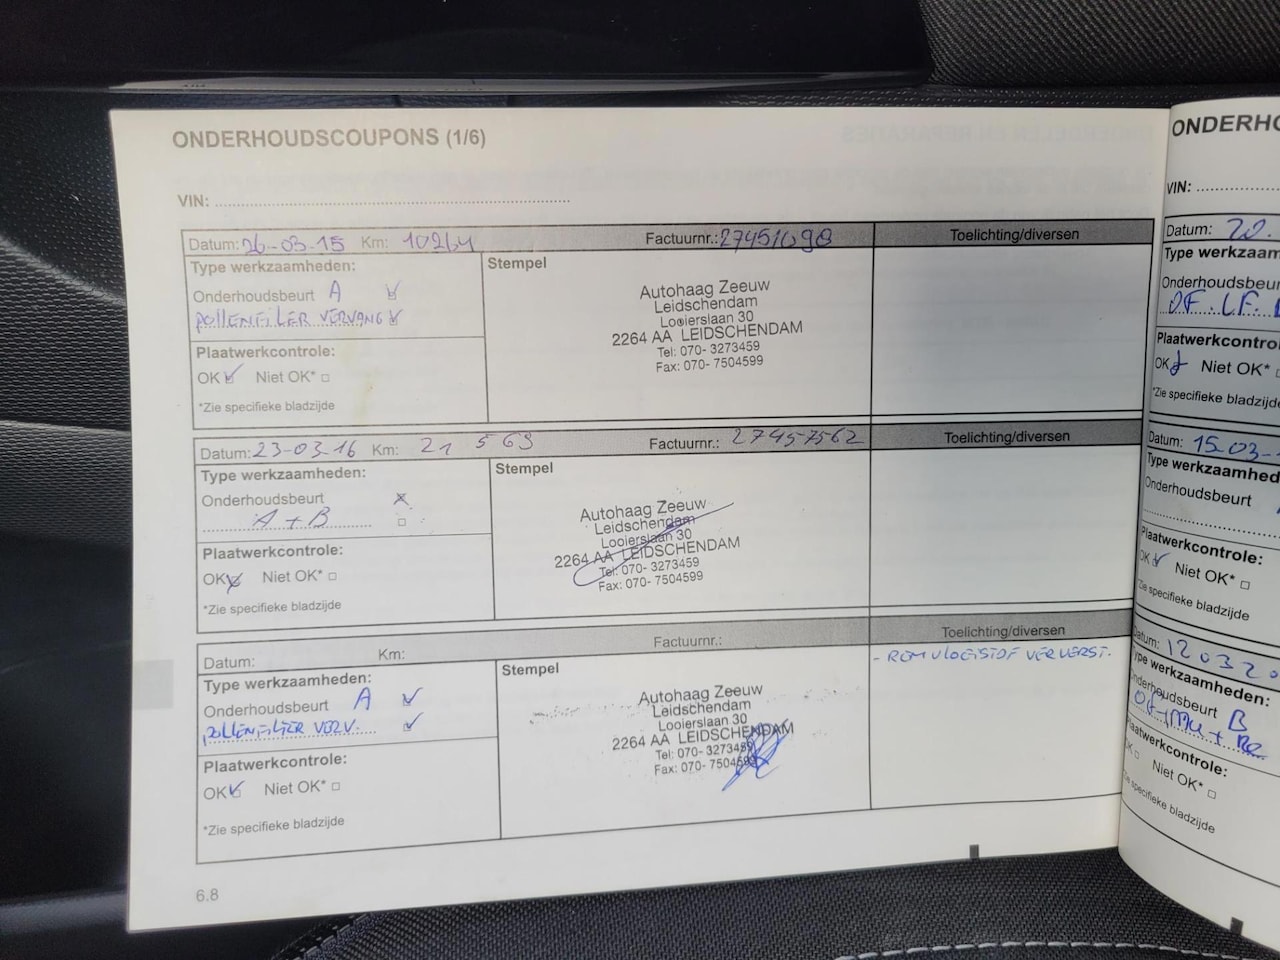 ONDERHOUDSCOUPONS (1/6)
VIN:
Datum: 26-03-15 Km: 10264 Factuurnr.: 27451090 Toelichting/diversen
Type werkzaamheden:
Onderhoudsbeurt A
POLLENFILTER VERVANG
Plaatwerkcontrole:
OK Niet OK*
*Zie specifieke bladzijde
Stempel
Autohaag Zeeuw
Leidschendam
Looierslaan 30
2264 AA LEIDSCHENDAM
Tel: 070- 3273459
Fax: 070- 7504599
Datum: 23-03-16 Km: 21 569 Factuurnr.: 27457562 Toelichting/diversen
Type werkzaamheden:
Onderhoudsbeurt
A + B
Plaatwerkcontrole:
OK Niet OK*
*Zie specifieke bladzijde
Stempel
Autohaag Zeeuw
Leidschendam
Looierslaan 30
2264 AA LEIDSCHENDAM
Tel: 070- 3273459
Fax: 070- 7504599
Datum: Km: Factuurnr.: Toelichting/diversen
Type werkzaamheden:
Onderhoudsbeurt A
POLLENFILTER VERV.
Plaatwerkcontrole:
OK Niet OK*
*Zie specifieke bladzijde
Stempel
Autohaag Zeeuw
Leidschendam
Looierslaan 30
2264 AA LEIDSCHENDAM
Tel: 070- 3273459
Fax: 070- 7504599
- REMVLOEISTOF VERVERST.
6.8
ONDERHO
VIN:
Datum: 20.
Type werkzaam
Onderhoudsbeur
OF. LF.
Plaatwerkcontro
OK Niet OK*
*Zie specifieke bladzijde
Datum: 15-03-
Type werkzaamhed
Onderhoudsbeurt
Plaatwerkcontrole:
OK Niet OK*
*Zie specifieke bladzijde
Datum: 12032
Type werkzaamheden:
Onderhoudsbeurt B
Plaatwerkcontrole:
Niet OK*
*Zie specifieke bladzijde